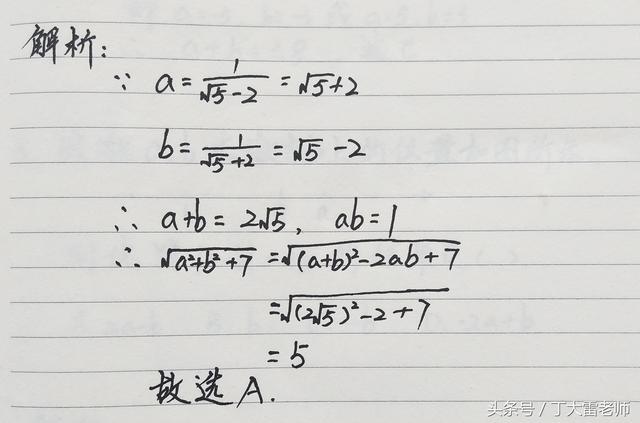 解析:
∵ a = 1/(√5-2) = √5+2
b = 1/(√5+2) = √5-2
∴ a+b = 2√5, ab=1
∴ √(a²+b²+7) = √((a+b)²-2ab+7)
=√((2√5)²-2+7)
= 5
故选A.
头条号／丁大雷老师